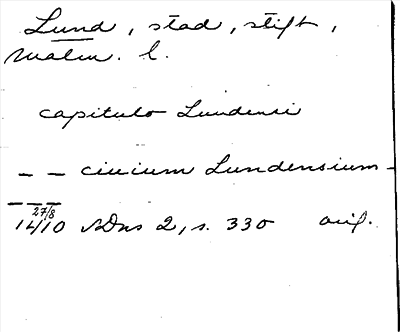 Lund, stad, stift,
Malm. l.
capitulo Lundensi
— — ciuium Lundensium —
— — —
1410 27/8 SDns 2, s. 330 orig.